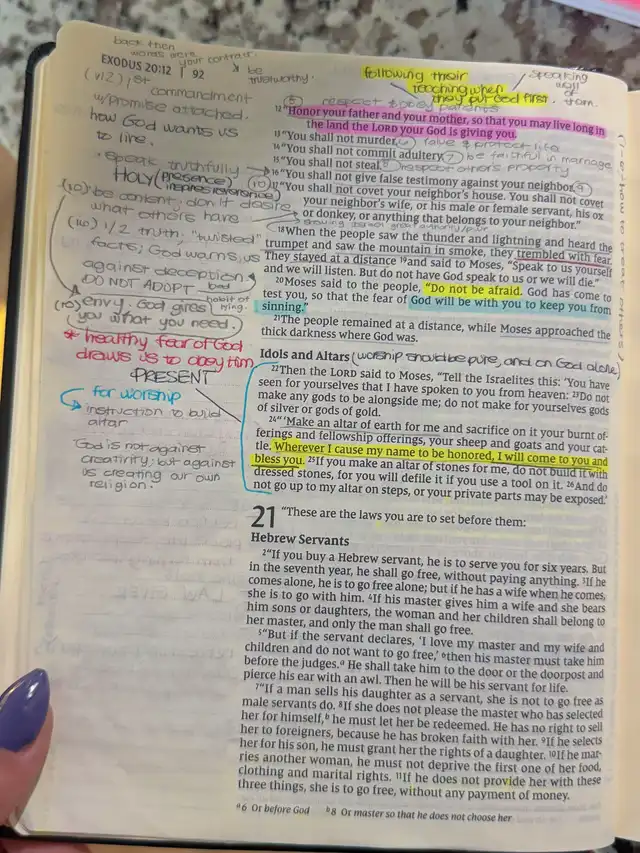 back then
words were your contract.
EXODUS 20:12 | 92
(v12) 1st
commandment
w/promise attached.
how God wants us
to live.
↳ be
trustworthy.
following their
teaching when
they put God first.
speaking
well
of them.
• speak truthfully
HOLY (presence)
(16)
(10) be content; don't desire
what others have
(16) 1/2 truth, "twisted"
facts; God warns us
against deception.
DO NOT ADOPT - bad
habit of
lying.
(10) envy. God gives
(you what you need.)
* healthy fear of God
draws us to obey Him
PRESENT
for worship
instruction to build
altar
God is not against
creativity; but against
us creating our own
religion.
(5) respect & obey parents
12 "Honor your father and your mother, so that you may live long in
the land the LORD your God is giving you.
13 "You shall not murder. (6) value & protect life
14 "You shall not commit adultery. (7) be faithful in marriage
15 "You shall not steal. (8) respect others property
16 "You shall not give false testimony against your neighbor. (9)
(10) 17 "You shall not covet your neighbor's house. You shall not covet
your neighbor's wife, or his male or female servant, his ox
or donkey, or anything that belongs to your neighbor."
18 When the people saw the thunder and lightning and heard the
trumpet and saw the mountain in smoke, they trembled with fear.
They stayed at a distance 19 and said to Moses, "Speak to us yourself
and we will listen. But do not have God speak to us or we will die."
20 Moses said to the people, "Do not be afraid. God has come to
test you, so that the fear of God will be with you to keep you from
sinning."
21 The people remained at a distance, while Moses approached the
thick darkness where God was.
Idols and Altars (worship should be pure, and on God alone)
22 Then the LORD said to Moses, "Tell the Israelites this: 'You have
seen for yourselves that I have spoken to you from heaven: 23 Do not
make any gods to be alongside me; do not make for yourselves gods
of silver or gods of gold.
24 "'Make an altar of earth for me and sacrifice on it your burnt of-
ferings and fellowship offerings, your sheep and goats and your cat-
tle. Wherever I cause my name to be honored, I will come to you and
bless you. 25 If you make an altar of stones for me, do not build it with
dressed stones, for you will defile it if you use a tool on it. 26 And do
not go up to my altar on steps, or your private parts may be exposed.'
21 "These are the laws you are to set before them:
Hebrew Servants
2 "If you buy a Hebrew servant, he is to serve you for six years. But
in the seventh year, he shall go free, without paying anything. 3 If he
comes alone, he is to go free alone; but if he has a wife when he comes,
she is to go with him. 4 If his master gives him a wife and she bears
him sons or daughters, the woman and her children shall belong to
her master, and only the man shall go free.
5 "But if the servant declares, 'I love my master and my wife and
children and do not want to go free,' 6 then his master must take him
before the judges.a He shall take him to the door or the doorpost and
pierce his ear with an awl. Then he will be his servant for life.
7 "If a man sells his daughter as a servant, she is not to go free as
male servants do. 8 If she does not please the master who has selected
her for himself,b he must let her be redeemed. He has no right to sell
her to foreigners, because he has broken faith with her. 9 If he selects
her for his son, he must grant her the rights of a daughter. 10 If he mar-
ries another woman, he must not deprive the first one of her food,
clothing and marital rights. 11 If he does not provide her with these
three things, she is to go free, without any payment of money.
a 6 Or before God b 8 Or master so that he does not choose her
(1-6: how to treat others)